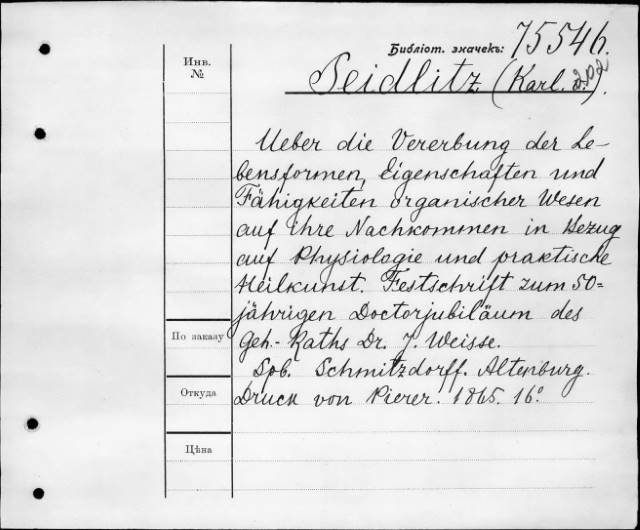 Библіот. значекъ: 75546.
202
Инв.
№
Seidlitz (Karl. J.).
Ueber die Vererbung der Le-
bensformen, Eigenschaften und
Fähigkeiten organischer Wesen
auf ihre Nachkommen in Bezug
auf Physiologie und praktische
Heilkunst. Festschrift zum 50=
jährigen Doctorjubiläum des
По заказу
Geh.- Raths Dr. J. Weisse.
Spb. Schmitzdorff. Altenburg.
Откуда
Druck von Pierer. 1865. 16°.
Цѣна